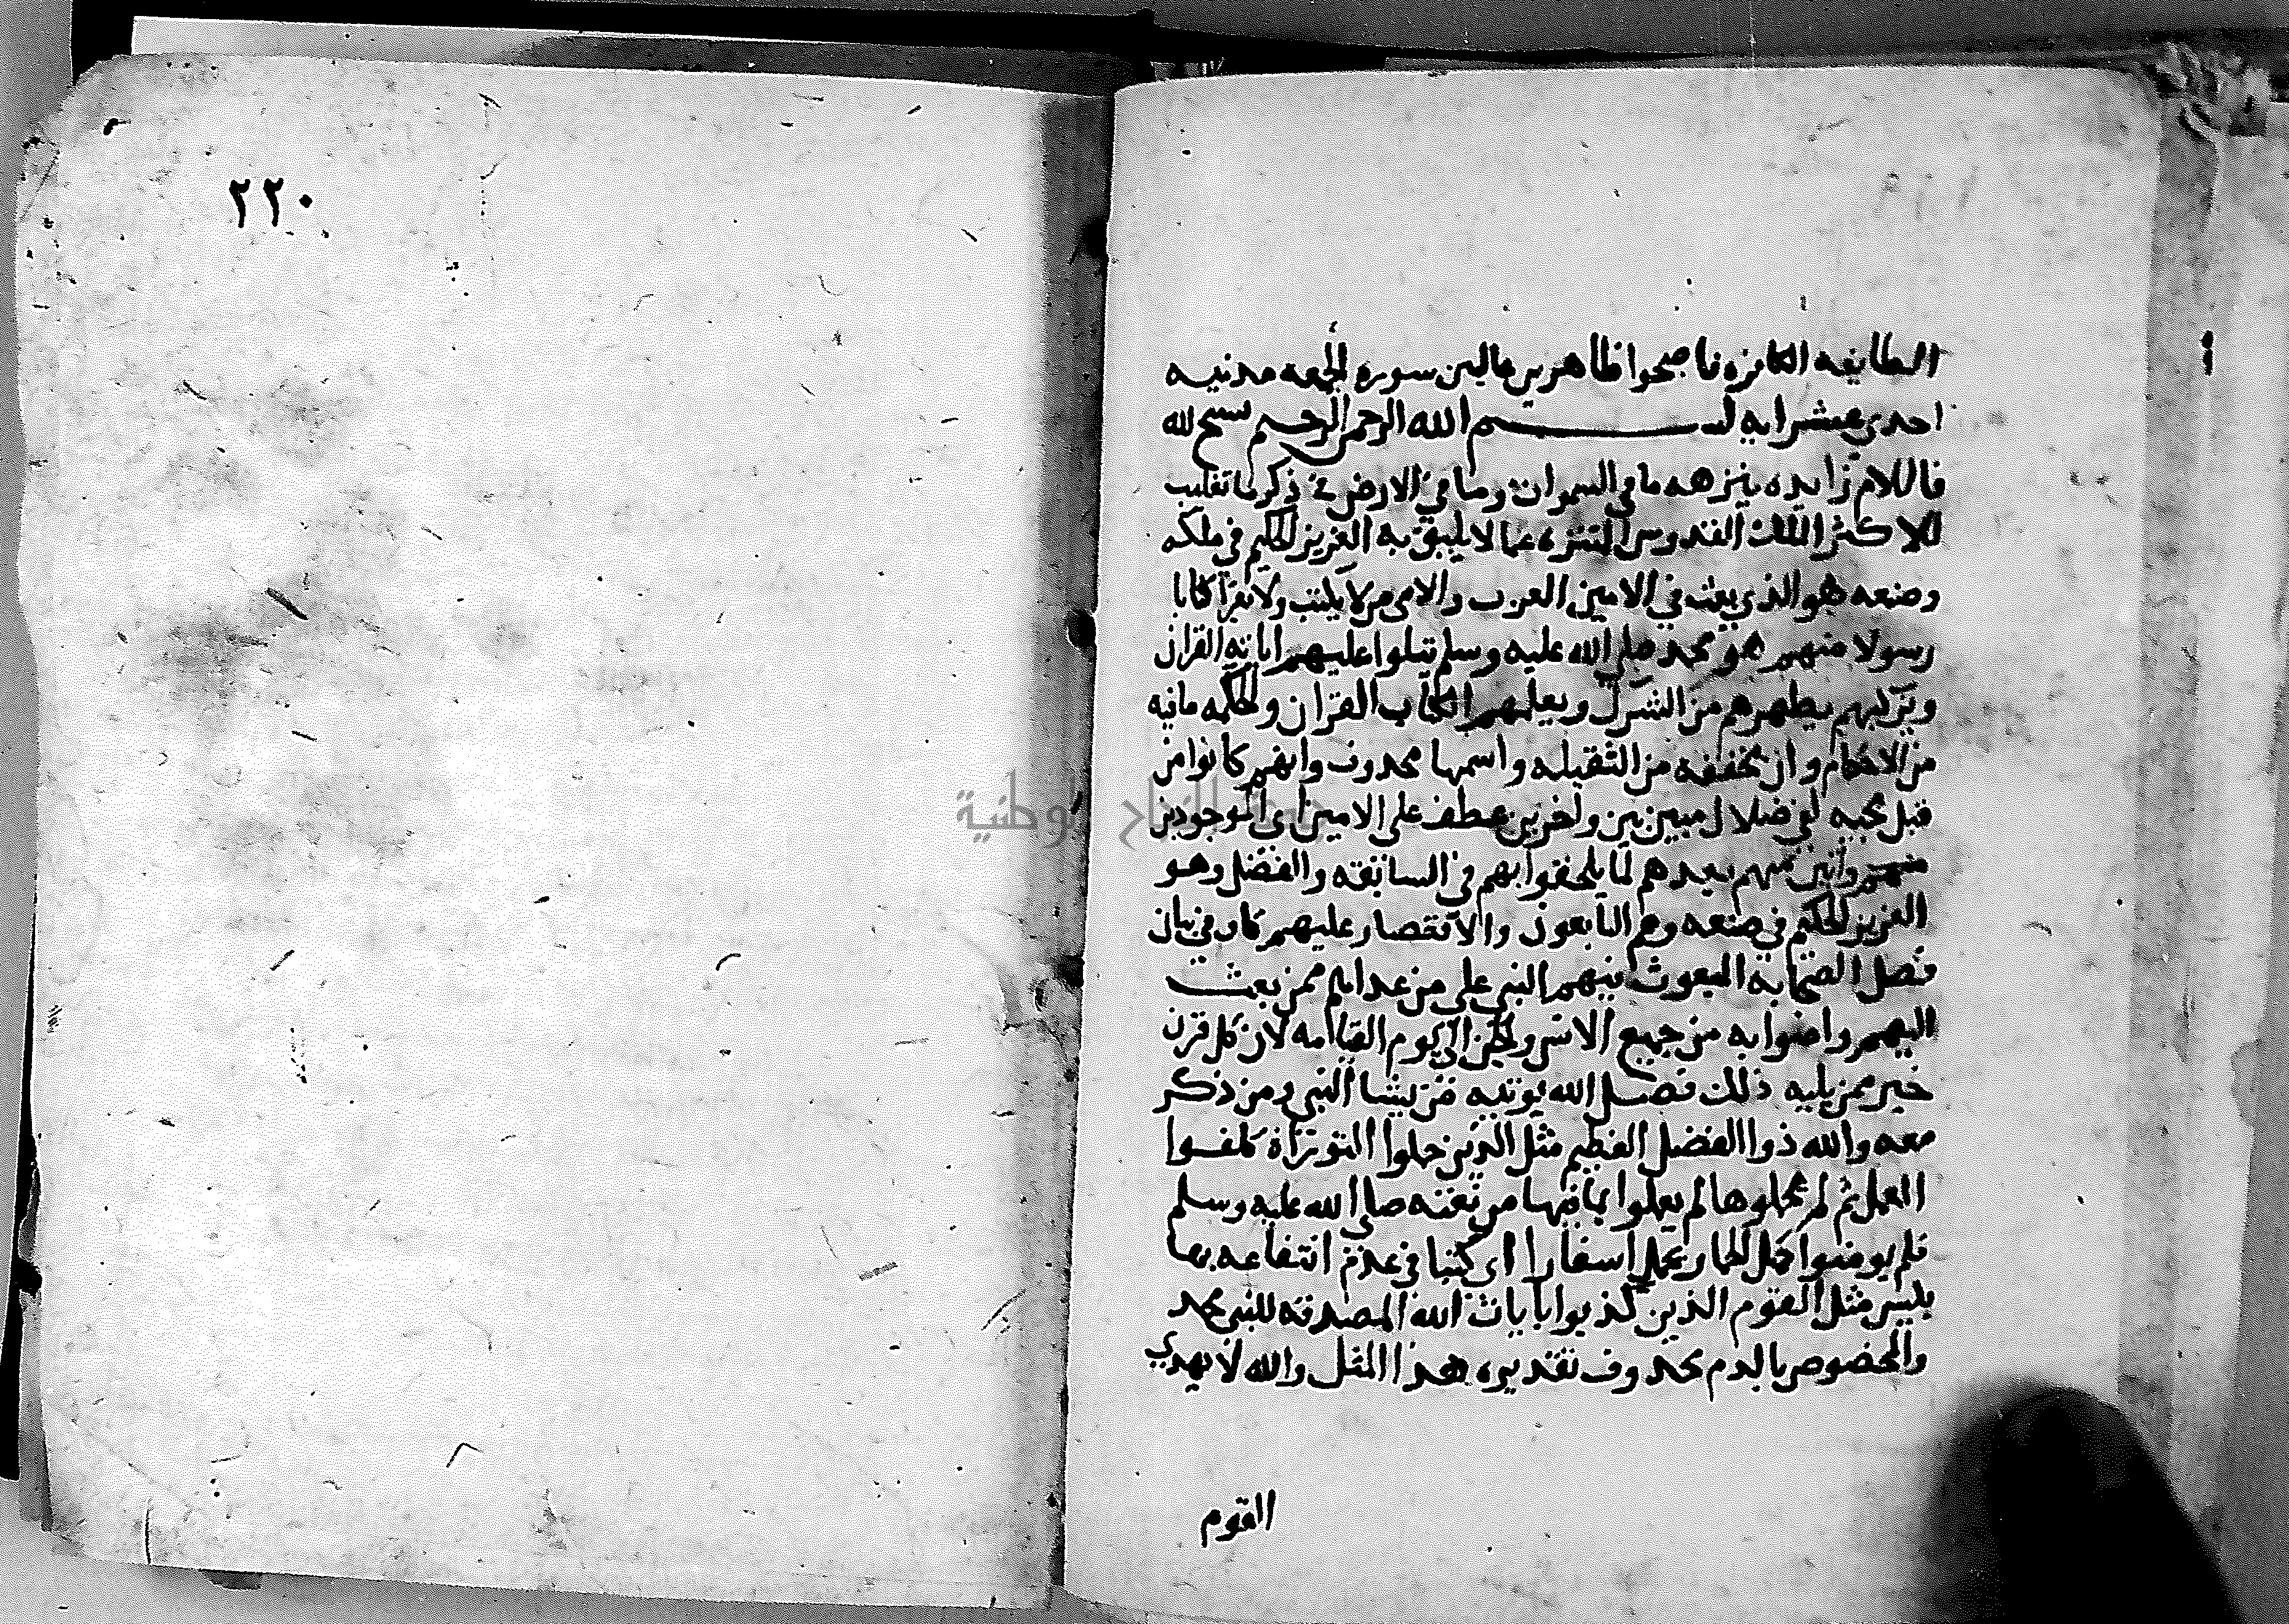 الطايفه الكافره فاصبحوا ظاهرين غالبين سورة الجمعه مدنيه
احدي عشر ايه بسم الله الرحمن الرحيم يسبح لله
فاللام زايده ينزهه ما في السموات وما في الارض في ذكر ما تغليب
للاكثر الملك القدوس المتنزه عما لا يليق به العزيز الحكيم في ملكه
وصنعه هو الذي بعث في الاميين العرب والامي من لا يكتب ولا يقرا كتابا
رسولا منهم هو محمد صلي الله عليه وسلم يتلوا عليهم اياته القران
ويزكيهم يطهرهم من الشرك ويعلمهم الكتاب القران والحكمه مافيه
من الاحكام وان مخففه من الثقيله واسمها محذوف وانهم كانوا من
قبل مجيه لفي ضلال مبين بين واخرين عطف علي الاميين اي الموجودين
منهم واتين منهم بعدهم لما يلحقوا بهم في السابقه والفضل وهو
العزيز الحكيم في صنعه وهم التابعون والاقتصار عليهم كاف في بيان
فضل الصحابه المبعوث فيهم النبي علي من عداهم ممن بعث
اليهم وامنوا به من جميع الانس والجن الي يوم القيامه لان كل قرن
خير ممن يليه ذلك فضل الله يوتيه من يشا النبي ومن ذكر
معه والله ذوا الفضل العظيم مثل الذين حملوا التوراة كلفوا
العمل ثم لم يحملوها لم يعملوا بما فيها من نعته صلي الله عليه وسلم
فلم يومنوا كمثل الحمار يحمل اسفارا اي كتبا في عدم انتفاعه بها
بيس مثل القوم الذين كذبوا بايات الله المصدقه للنبي محمد
والمخصوص بالذم محذوف تقديره هذا المثل والله لا يهدي
القوم
٢٢٠
الوطنية